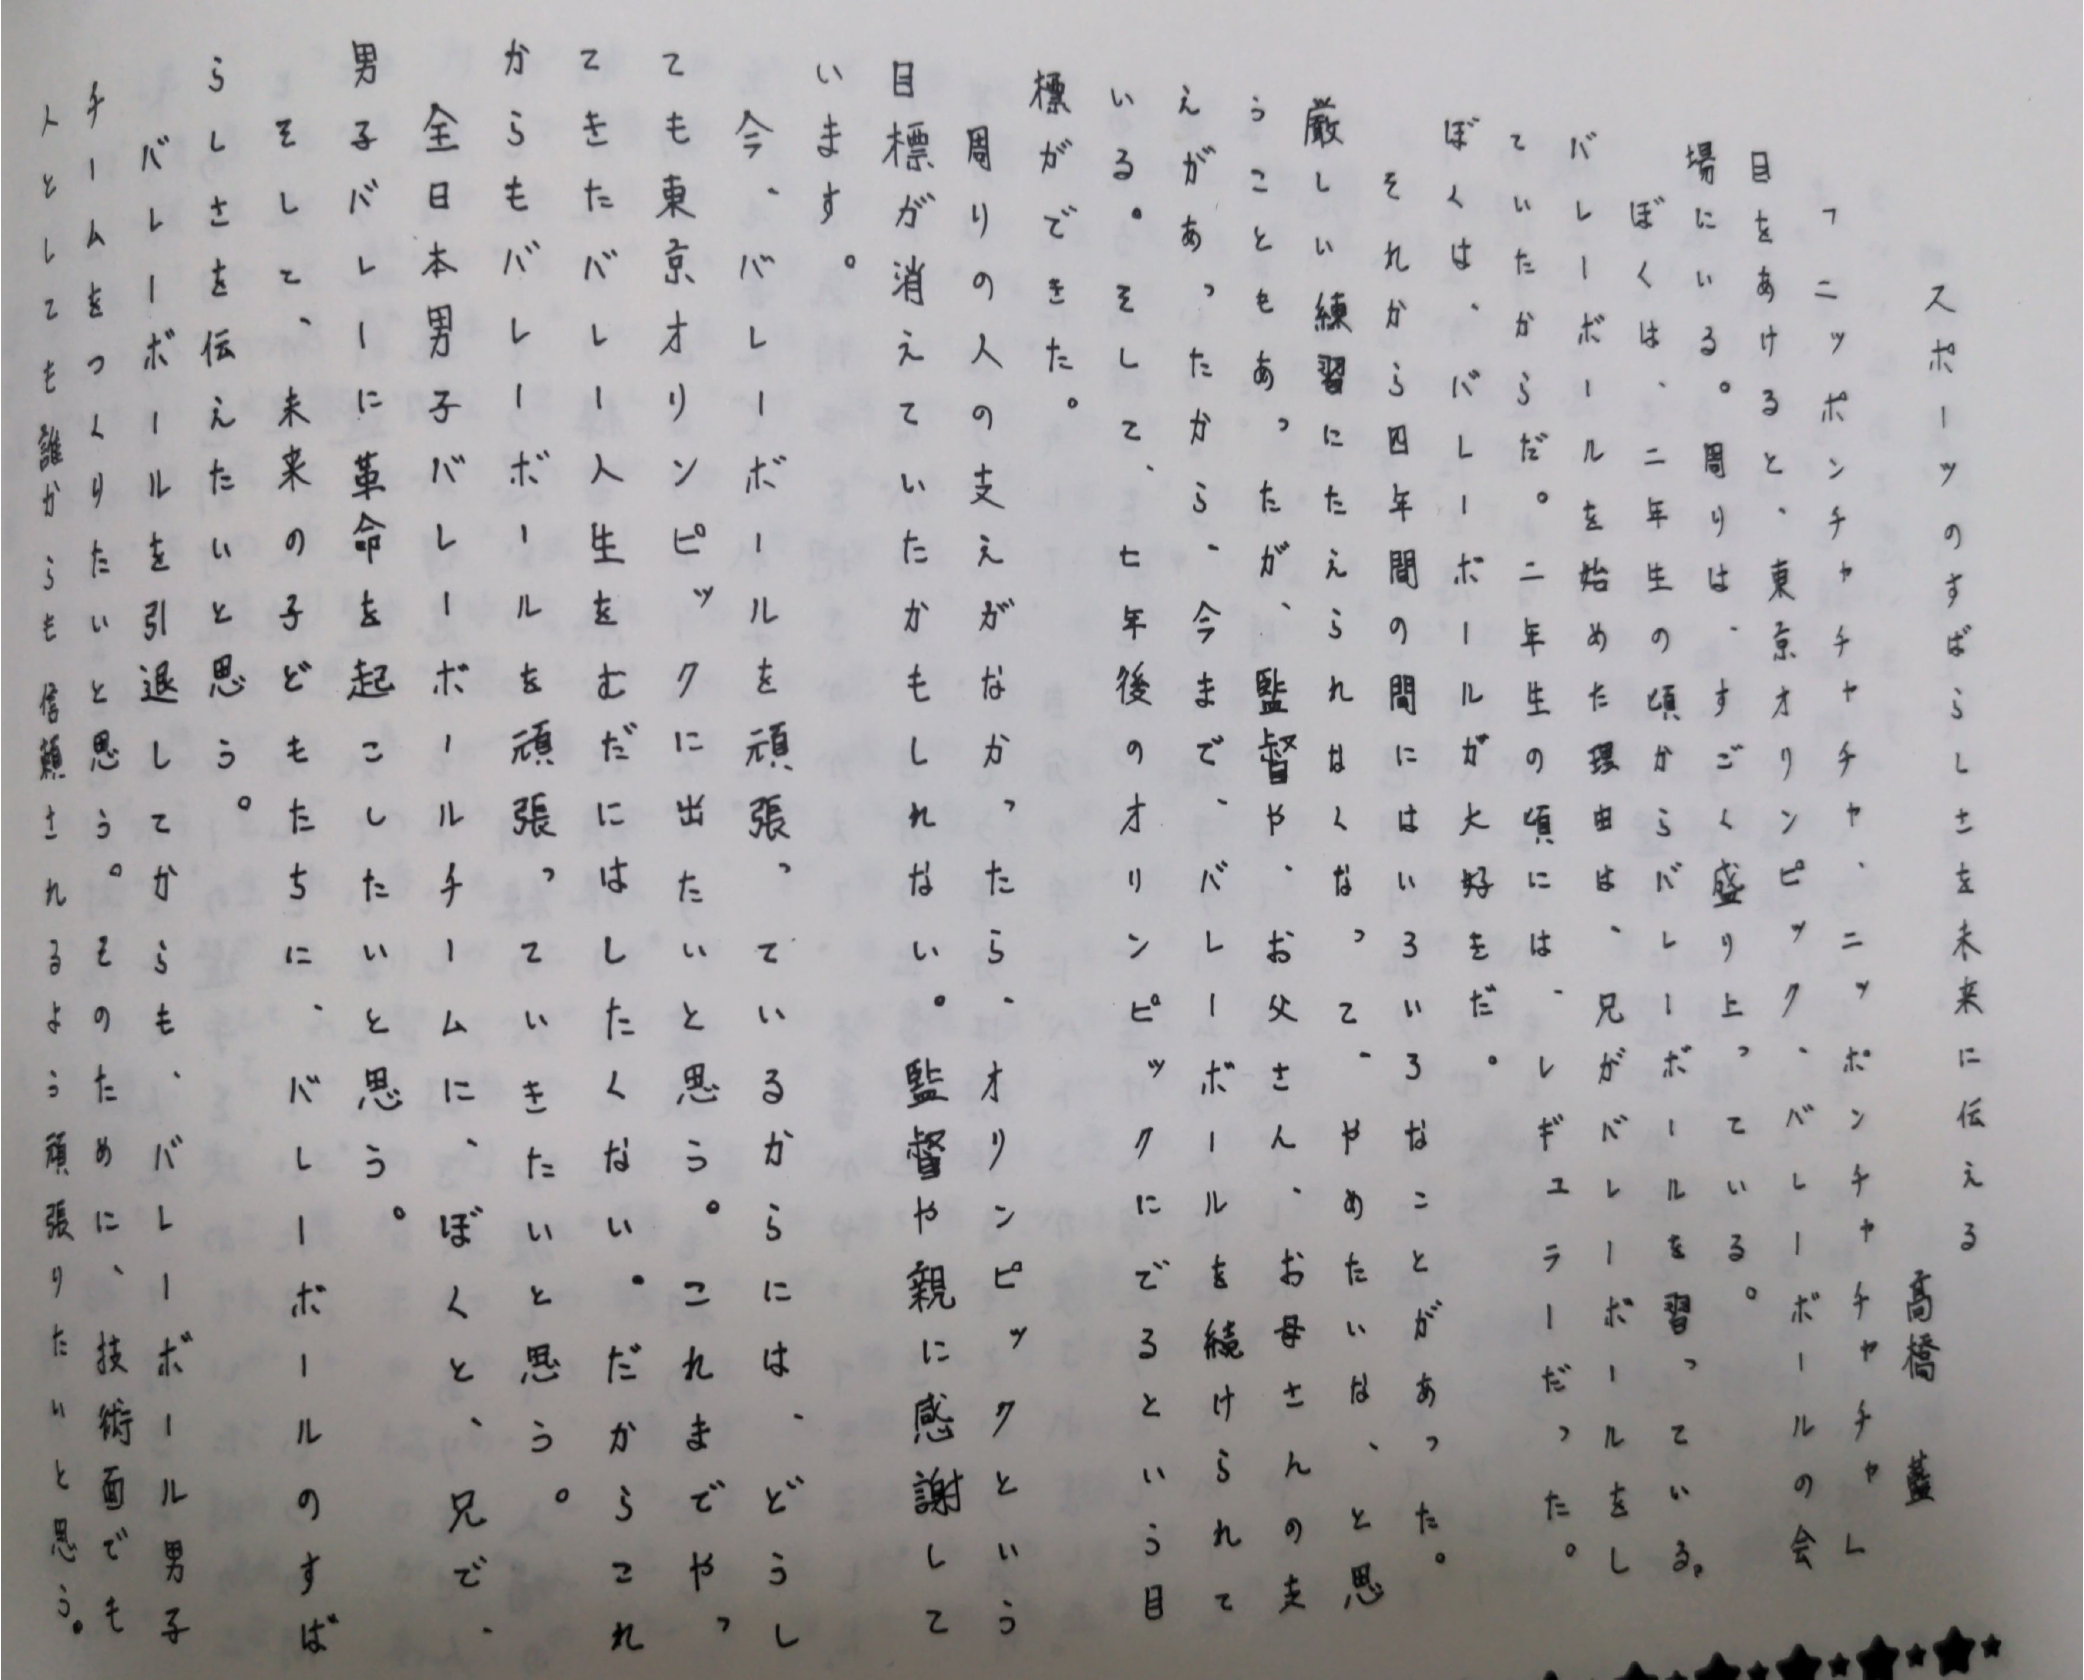 スポーツのすばらしさを未来に伝える
高橋 藍
「ニッポンチャチャチャ、ニッポンチャチャチャ」
目をあけると、東京オリンピック、バレーボールの会
場にいる。周りは、すごく盛り上っている。
ぼくは、二年生の頃からバレーボールを習っている。
バレーボールを始めた理由は、兄がバレーボールをし
ていたからだ。二年生の頃には、レギュラーだった。
ぼくは、バレーボールが大好をだ。
それから四年間の間にはいろいろなことがあった。
厳しい練習にたえられなくなって、やめたいな、と思
うこともあったが、監督や、お父さん、お母さんの支
えがあったから、今まで、バレーボールを続けられて
いる。そして、七年後のオリンピックにでるという目
標ができた。
周りの人の支えがなかったら、オリンピックという
目標が消えていたかもしれない。監督や親に感謝して
います。
今、バレーボールを頑張っているからには、どうし
ても東京オリンピックに出たいと思う。これまでやっ
てきたバレー人生をむだにはしたくない。だからこれ
からもバレーボールを頑張っていきたいと思う。
全日本男子バレーボールチームに、ぼくと、兄で、
男子バレーに革命を起こしたいと思う。
そして、未来の子どもたちに、バレーボールのすば
らしさを伝えたいと思う。
バレーボールを引退してからも、バレーボール男子
チームをつくりたいと思う。そのために、技術面でも
人としても誰からも信頼されるよう頑張りたいと思う。